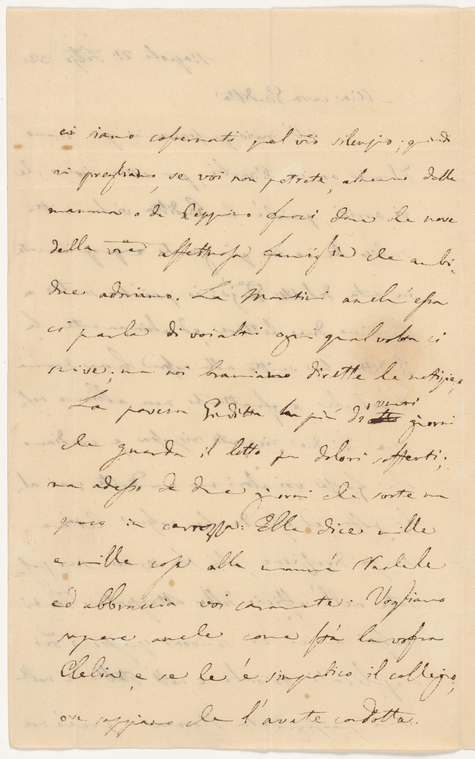 ci siamo costernati pel vro silenzio; quindi
vi preghiamo, se voi non potrete, almeno dalla
mamma o da Peppino farci dare le nove
della vra affettuosa famiglia che ambi-
due adoriamo. La Martini anch'essa
ci parla di voialtri ogni qual volta ci
scrive; ma noi bramiamo dirette le notizie.
La povera Giuditta ha più di venti giorni
che guarda il letto per dolori sofferti;
ma adesso da due giorni che sorte un
poco in carrozza. Ella dice mille
e mille cose alla mamma Rachele
ed abbraccia voi caramente. Vogliamo
sapere anche come stà la vostra
Clelia, e se le è simpatico il collegio,
ove sappiamo che l'avate condotta.